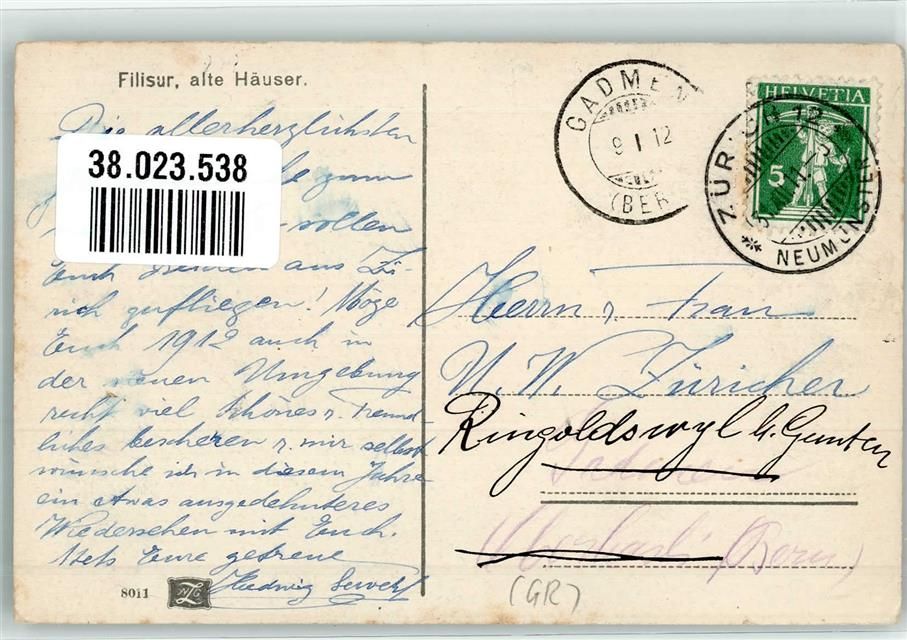 Filisur, alte Häuser.
Die allerherzlichsten
38.023.538
zum
wollen
Euch aus Zü-
rich zufliegen! Möge
Euch 1912 auch in
der neuen Umgebung
recht viel Schönes u. Freund-
liches bescheren u. mir selbst
wünsche ich in diesem Jahre
ein etwas ausgedehnteres
Wiedersehen mit Euch.
Stets Eure getreue
Hedwig
8011
GADMEN
9 I 12
(BER
HELVETIA
5
ZÜRICH 12
NEUMÜNSTER
Herrn u. Frau
U. W. Züricher
Ringoldswyl b. Gunten
Gadmen
(Bern)
(GR)